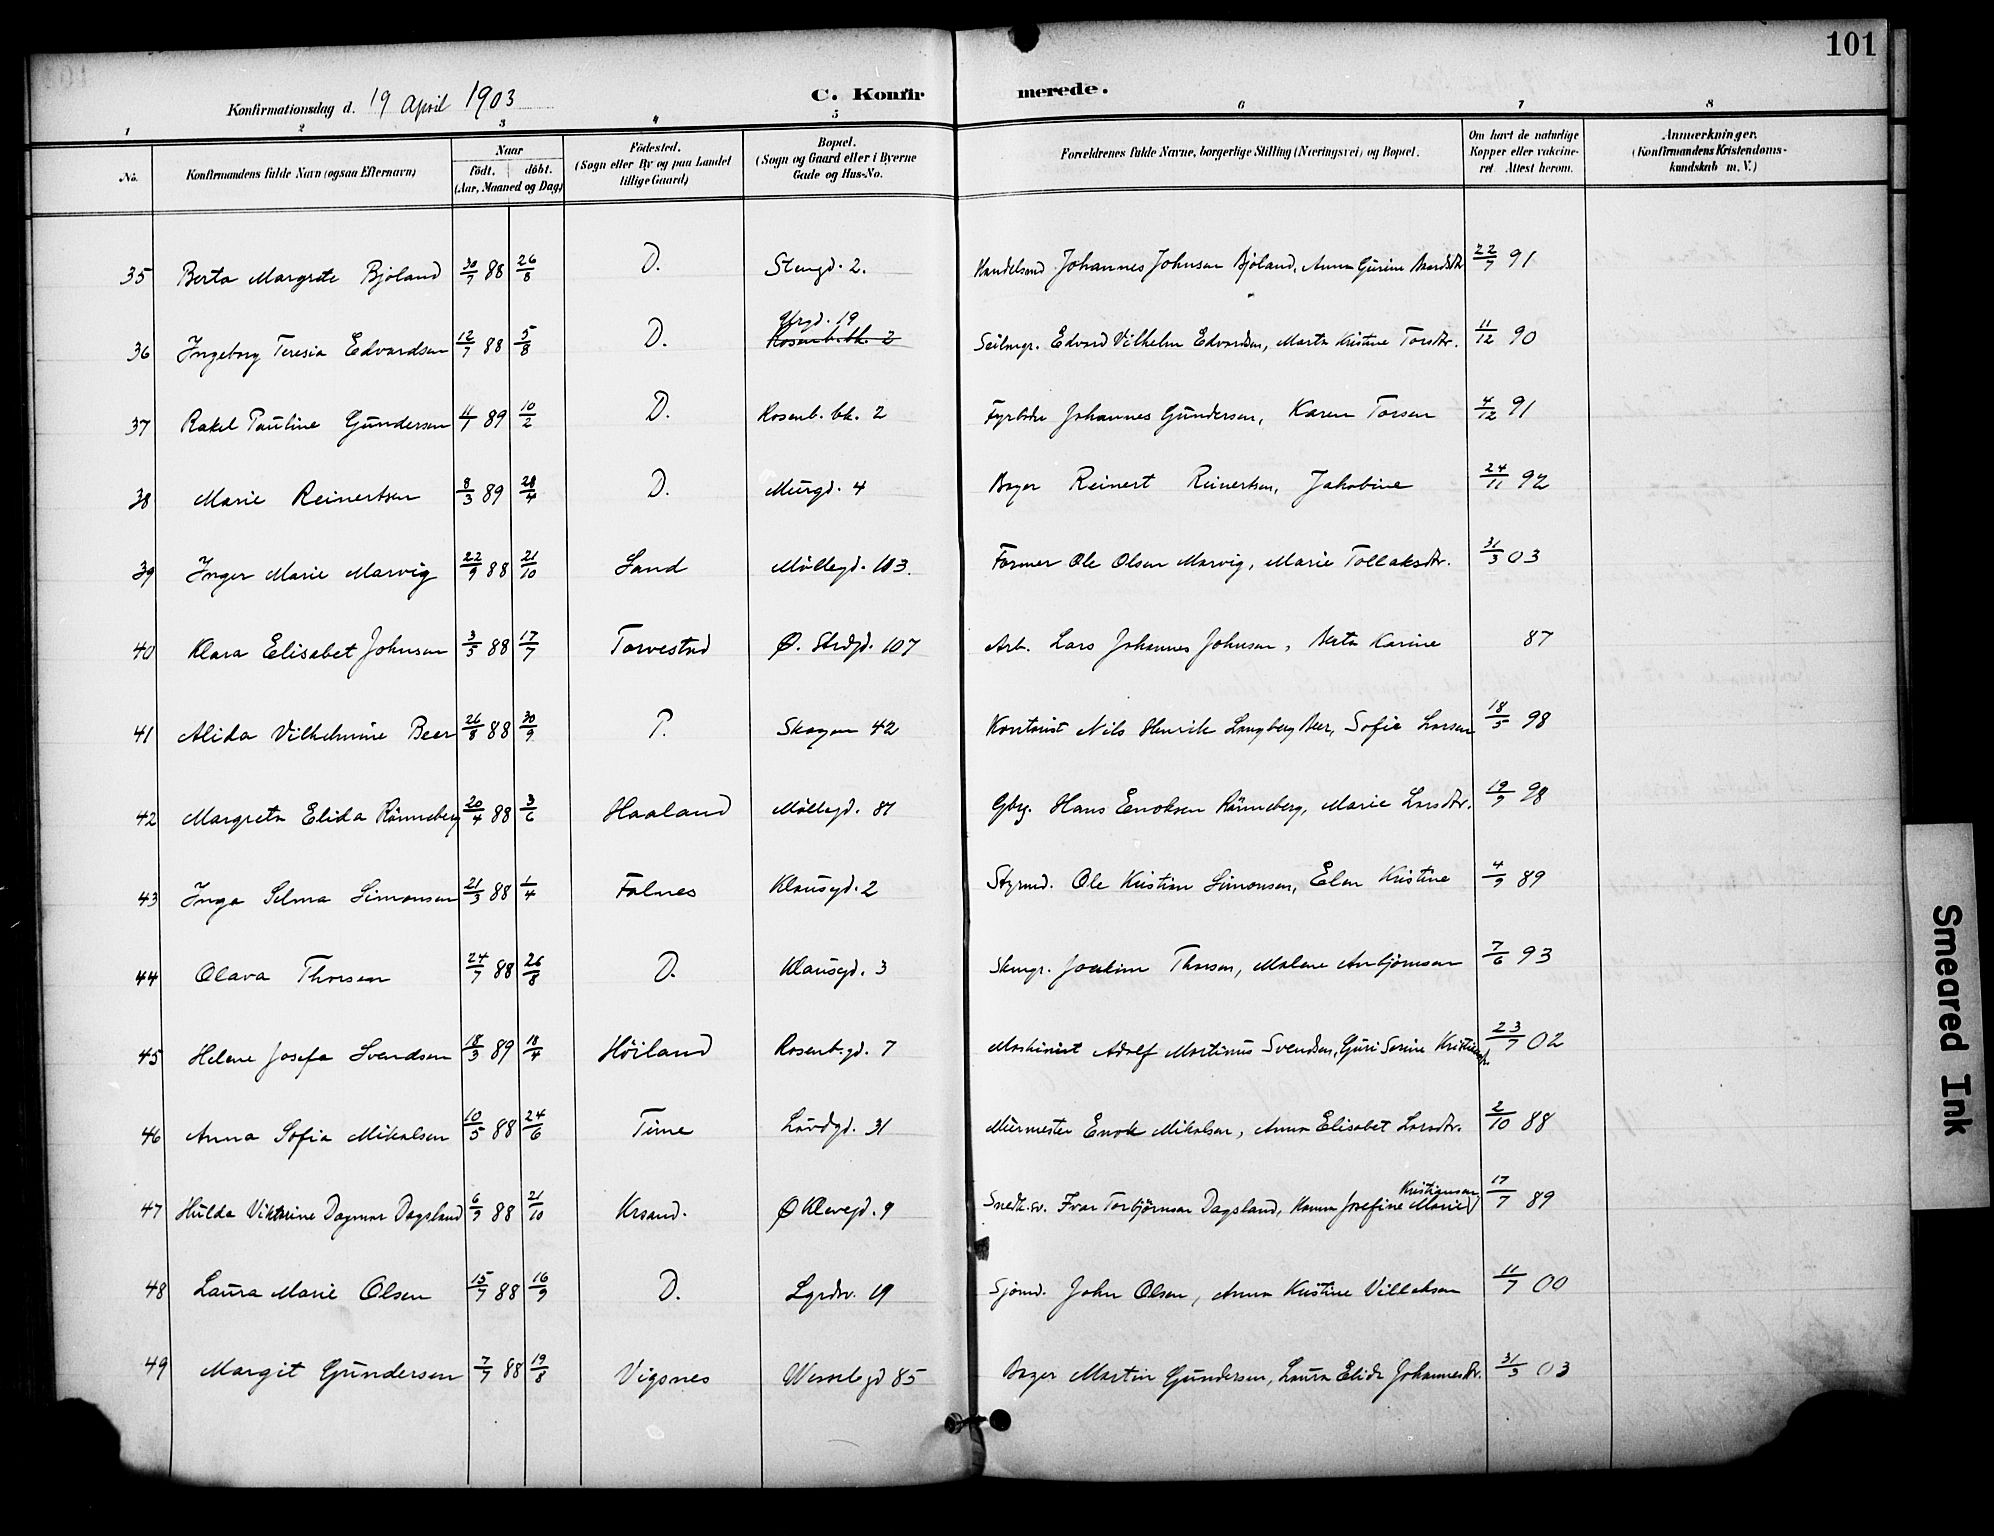 101
Konfirmationsdag d. 19 April 1903
C. Konfirmerede.
1 2 3 4 5 6 7 8
No. Konfirmandens fulde Navn (ogsaa Efternavn) Naar födt. döbt. (Aar, Maaned og Dag) Födested. (Sogn eller By og paa Landet tillige Gaard) Bopæl. (Sogn og Gaard eller i Byerne Gade og Hus-No. Forældrenes fulde Navne, borgerlige Stilling (Næringsvei) og Bopæl. Om havt de naturlige Kopper eller vaksineret. Attest herom. Anmærkninger. (Konfirmandens Kristendomskundskab m. V.)
35 Berta Margrete Bjoland 30/7 88 26/8 D. Stengd. 2. Handelsmd Johannes Johnsen Bjoland, Anna Gurine 22/7 91
36 Ingeborg Teresia Edvardsen 12/7 88 5/8 D. 19 Rosenb. bk. 2 Seilmgr. Edvard Vilhelm Edvardsen, Marta Kristine Torsdtr. 11/12 90
37 Rakel Pauline Gundersen 4/1 89 10/2 D. Rosenb. bk. 2 Fyrbdr Johannes Gundersen, Karen Torsen 4/12 91
38 Marie Reinertsen 8/3 89 28/4 D. Murgd. 4 Bager Reinert Reinertsen, Jakobine 24/11 92
39 Inger Marie Marvig 22/9 88 21/10 Sand Möllegd. 103. Former Ole Olsen Marvig, Marie Tollaksdtr. 31/3 03
40 Klara Elisabet Johnsen 3/5 88 17/7 Torvestad Ø. Strdgd. 107 Arb. Lars Johannes Johnsen, Berta Karine 87
41 Alida Vilhelmine Beer 26/8 88 30/9 P. Skagen 42 Kontorist Nils Henrik Langberg Beer, Sofie Larsen 18/5 98
42 Margreta Elida Rönneberg 20/4 88 3/6 Haaland Möllegd. 81 Gbrg. Hans Enoksen Rönneberg, Marie Larsdtr. 19/9 98
43 Inga Selma Simonsen 21/3 88 1/4 Falnes Klausgd. 2 Styrmd. Ole Kristian Simonsen, Elen Kristine 4/9 89
44 Olava Thorsen 24/7 88 26/8 D. Klausgd. 3 Skmgr. Joakim Thorsen, Malene Anbjörnsen 7/6 93
45 Helene Josefa Svendsen 18/3 89 18/4 Höiland Rosenb.gd. 7 Maskinist Adolf Martinus Svendsen, Guri Serine 23/7 02
46 Anna Sofia Mikalsen 10/5 88 24/6 Time Lövdgd. 31 Murmester Enok Mikalsen, Anna Elisabet Larsdtr. 2/10 88
47 Hulda Viktorine Dagmar Dagsland 6/9 88 21/10 Krsand. Ø Klevegd. 9 Snedk.sv. Ivar Torbjörnsen Dagsland, Josefine Marie Kristiansen 17/7 89
48 Laura Marie Olsen 15/7 88 16/9 D. 19 Sjömd. John Olsen, Anna Kristine Villaksen 11/7 00
49 Margit Gundersen 7/7 88 19/8 Vigsnes 85 Bager Martin Gundersen, Laura Elida Johannesdtr. 31/3 03
Smeared Ink